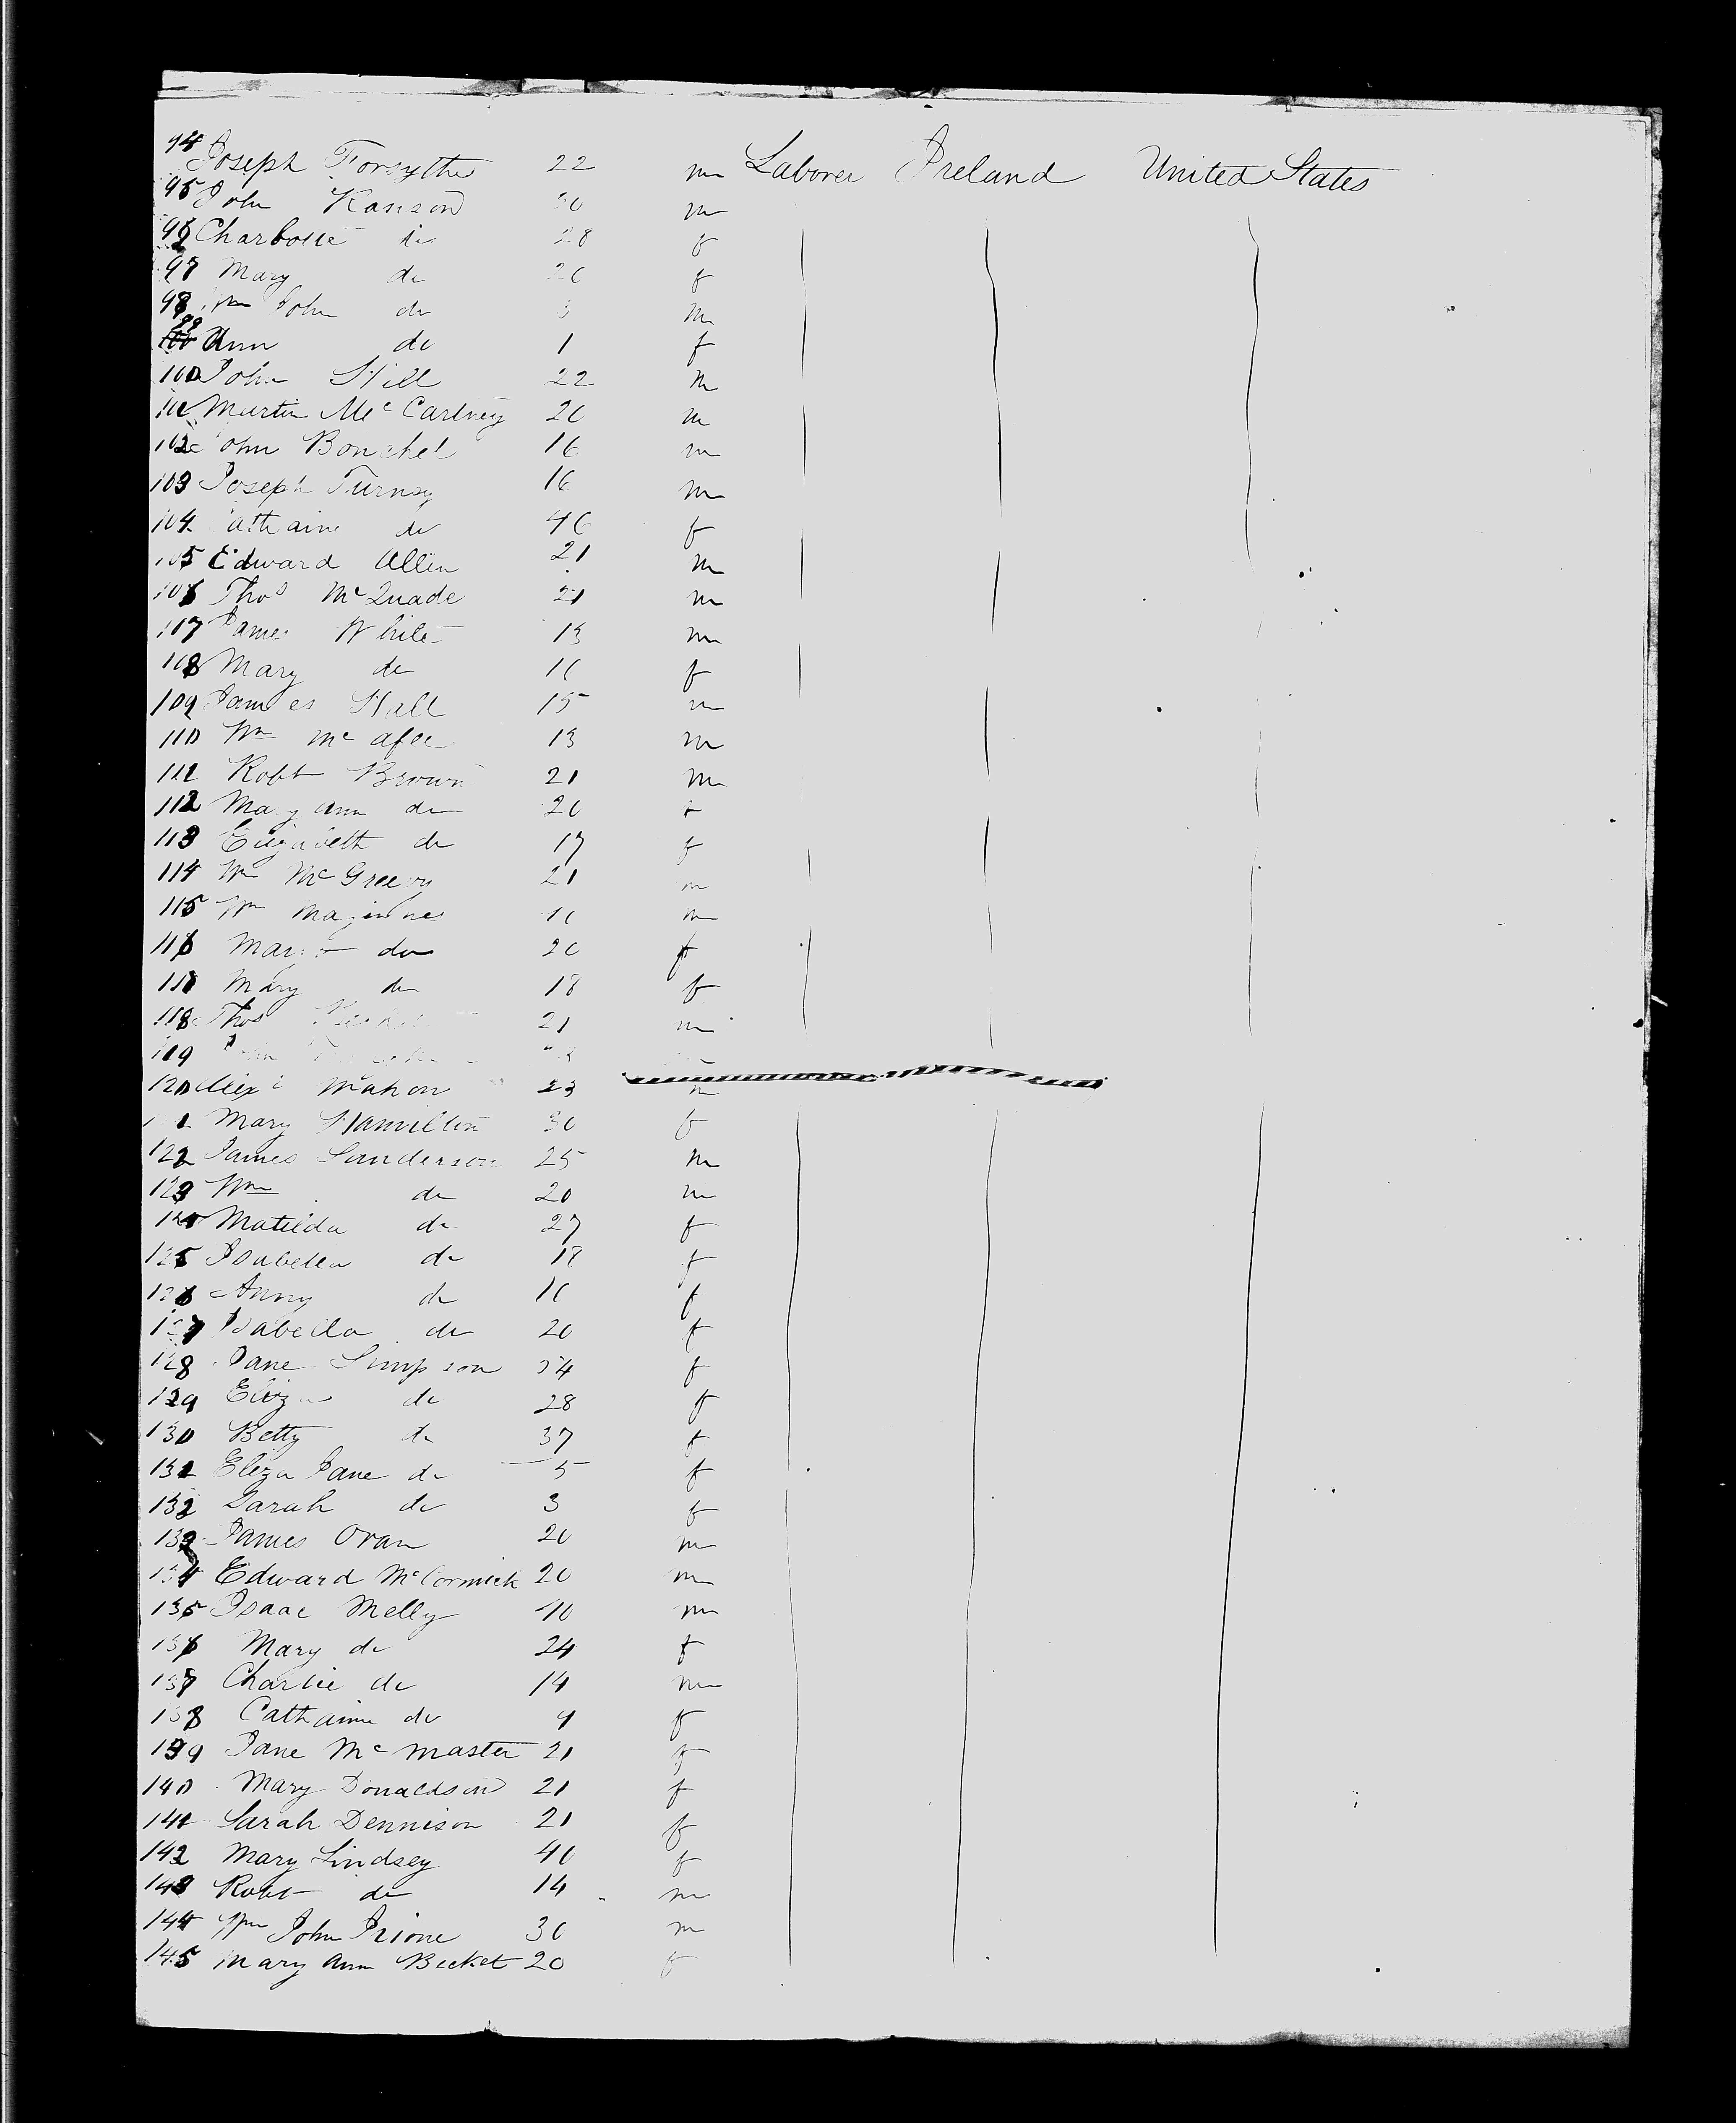 94 Joseph Forsythe 22 m Laborer Ireland United States
95 John Ranson 30 m
96 Charlotte do 28 f
97 Mary do 20 f
98 Wm John do 3 m
99 Ann do 1 f
100 John Hill 22 m
101 Martin McCartney 20 m
102 John Bonchel 16 m
103 Joseph Turney 16 m
104 Cathaine do 40 f
105 Edward Allen 21 m
106 Thos McQuade 21 m
107 James White 13 m
108 Mary do 10 f
109 James Hall 15 m
110 Wm McAfee 13 m
111 Robt Brown 21 m
112 Mary Ann do 20 f
113 Elizabeth do 17 f
114 Wm McGreevy 21 m
115 Wm m
116 do 20 f
117 Mary do 18 f
118 Thos 21 m
119 John
120 Alexr Mahon 23 m
121 Mary Hamilton 30 f
122 James Sanderson 25 m
123 Wm do 20 m
124 Matilda do 27 f
125 Isabella do 18 f
126 Anny do 16 f
127 Isabella do 20 f
128 Jane Simpson 54 f
129 Eliza do 28 f
130 Betty do 37 f
131 Eliza Jane do 5 f
132 Sarah do 3 f
133 James Oran 20 m
134 Edward McCormick 20 m
135 Isaac Melly 40 m
136 Mary do 24 f
137 Charlie do 14 m
138 Cathaine do 9 f
139 Jane McMaster 21 f
140 Mary Donaldson 21 f
141 Sarah Dennison 21 f
142 Mary Lindsey 40 f
143 Robt do 14 m
144 Wm John Prione 30 m
145 Mary Ann Becket 20 f